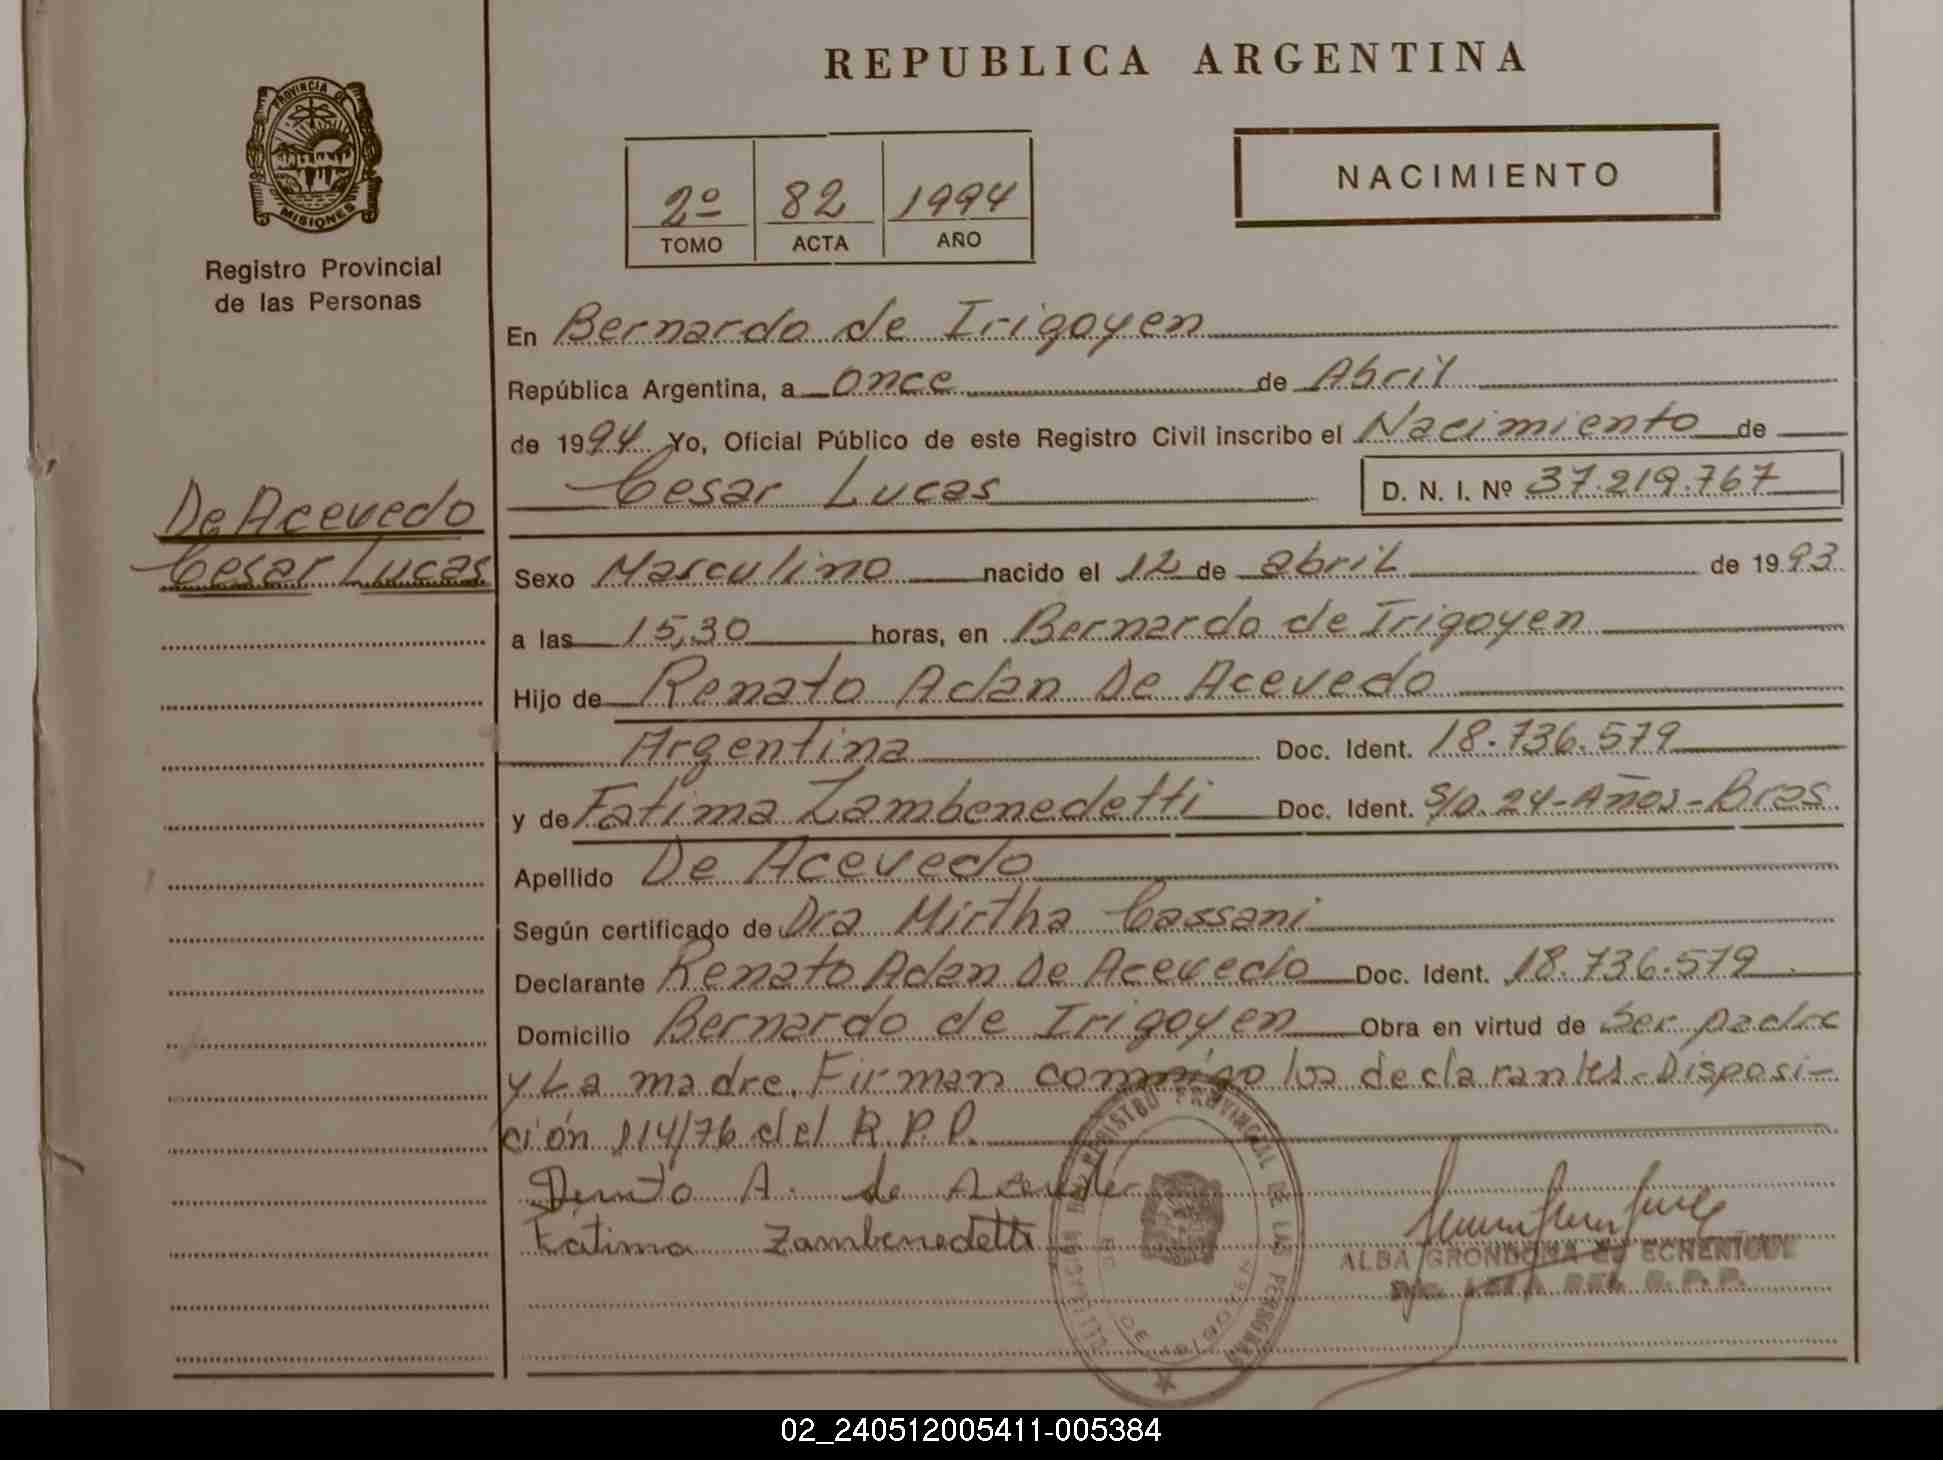 REPUBLICA ARGENTINA
PROVINCIA DE
MISIONES
Registro Provincial
de las Personas
2º 82 1994
TOMO ACTA AÑO
NACIMIENTO
De Acevedo
Cesar Lucas
En Bernardo de Irigoyen
República Argentina, a once de Abril
de 1994 Yo, Oficial Público de este Registro Civil inscribo el Nacimiento de
Cesar Lucas D. N. I. Nº 37.219.767
Sexo Masculino nacido el 12 de abril de 1993
a las 15,30 horas, en Bernardo de Irigoyen
Hijo de Renato Adan De Acevedo
Argentina Doc. Ident. 18.736.579
y de Fatima Zambenedetti Doc. Ident. S/D. 24-Años-Bras
Apellido De Acevedo
Según certificado de Dra Mirtha Cassani
Declarante Renato Adan De Acevedo Doc. Ident. 18.736.579
Domicilio Bernardo de Irigoyen Obra en virtud de Ser padre
y La madre. Firman conmigo los declarantes-Disposi-
ción 114/76 del R.P.P.
A. de
Fátima Zambenedetti
REGISTRO PROVINCIAL DE LAS PERSONAS
ALBA GRONDONA DE ECHENIQUE
R. P. P.
02_240512005411-005384